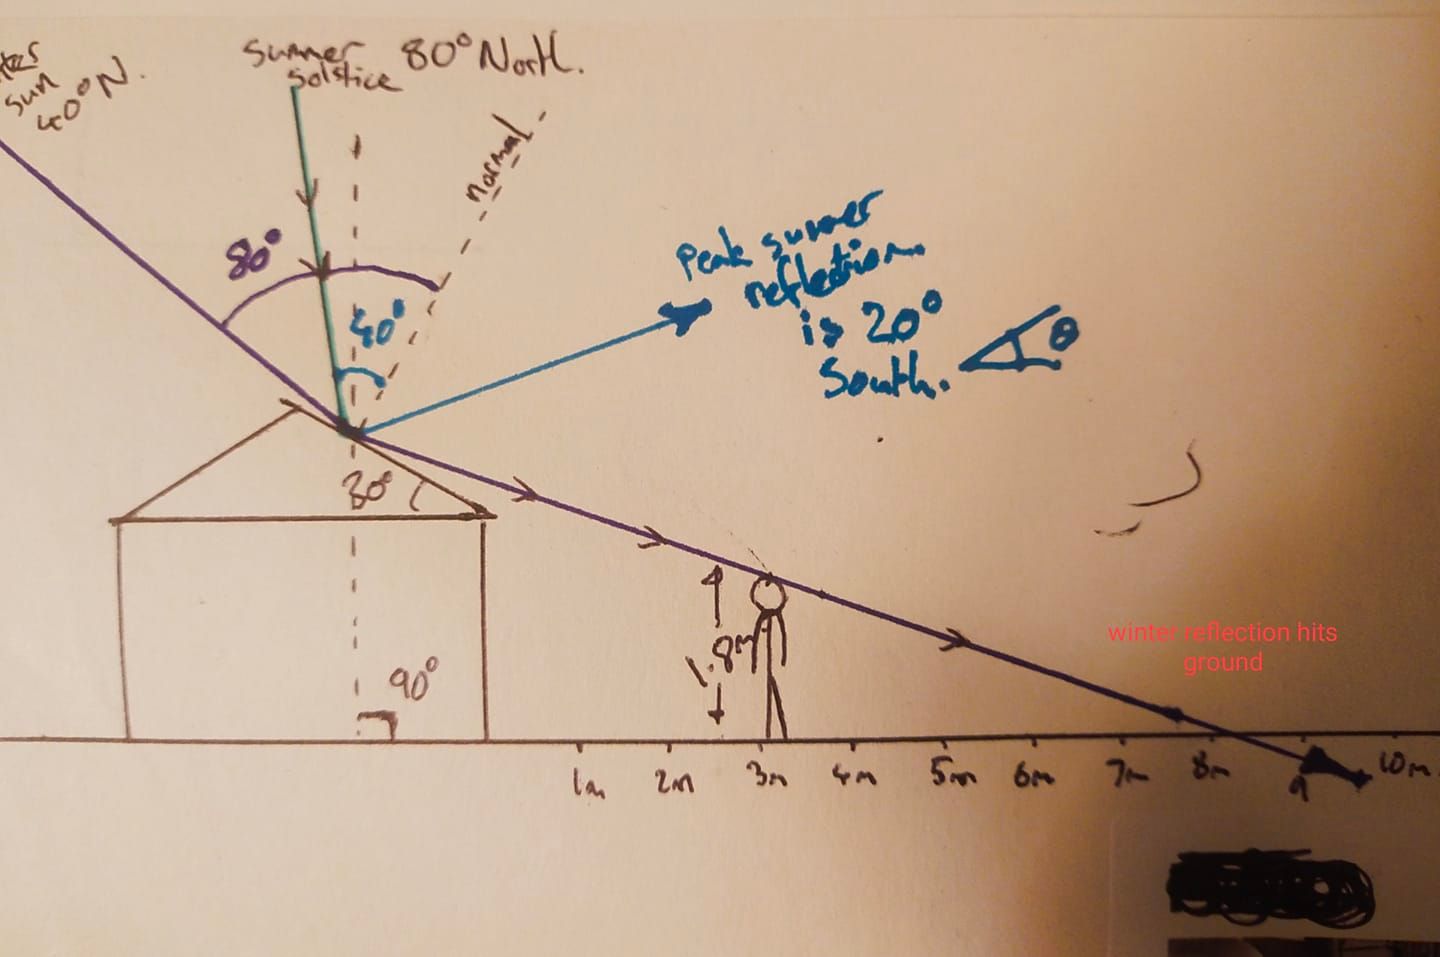 sun
40°N.
Summer
solstice 80° North.
normal
80°
40°
Peak summer
reflection
is 20°
South.
θ
30°
1.8m
90°
winter reflection hits
ground
1m 2m 3m 4m 5m 6m 7m 8m 9 10m